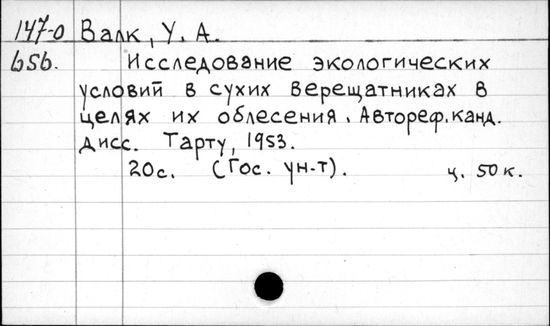 147-0 Валк, У. А.
bsb. Исследование экологических
условий в сухих верещатниках в
целях их облесения. Автореф. канд.
дисс. Тарту, 1953.
20с. (Гос. ун-т). ц. 50 к.